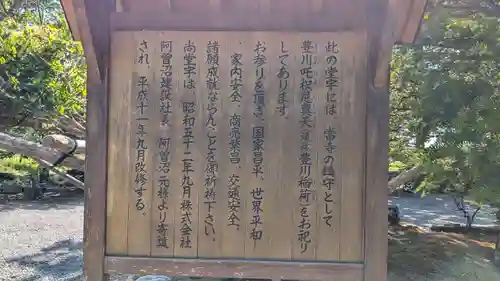 此の堂宇は、当寺の鎮守として
豊川吒枳尼眞天(豊川稲荷)をお祀り
してあります。
お参りを頂き、国家昌平、世界平和
、家内安全、商売繁昌、交通安全、
諸願成就ならんことを御祈下さい。
尚堂宇は、昭和五十二年九月株式会社
阿曽沼建設社長、阿曽沼元様より寄進
され、平成十一年九月改修する。